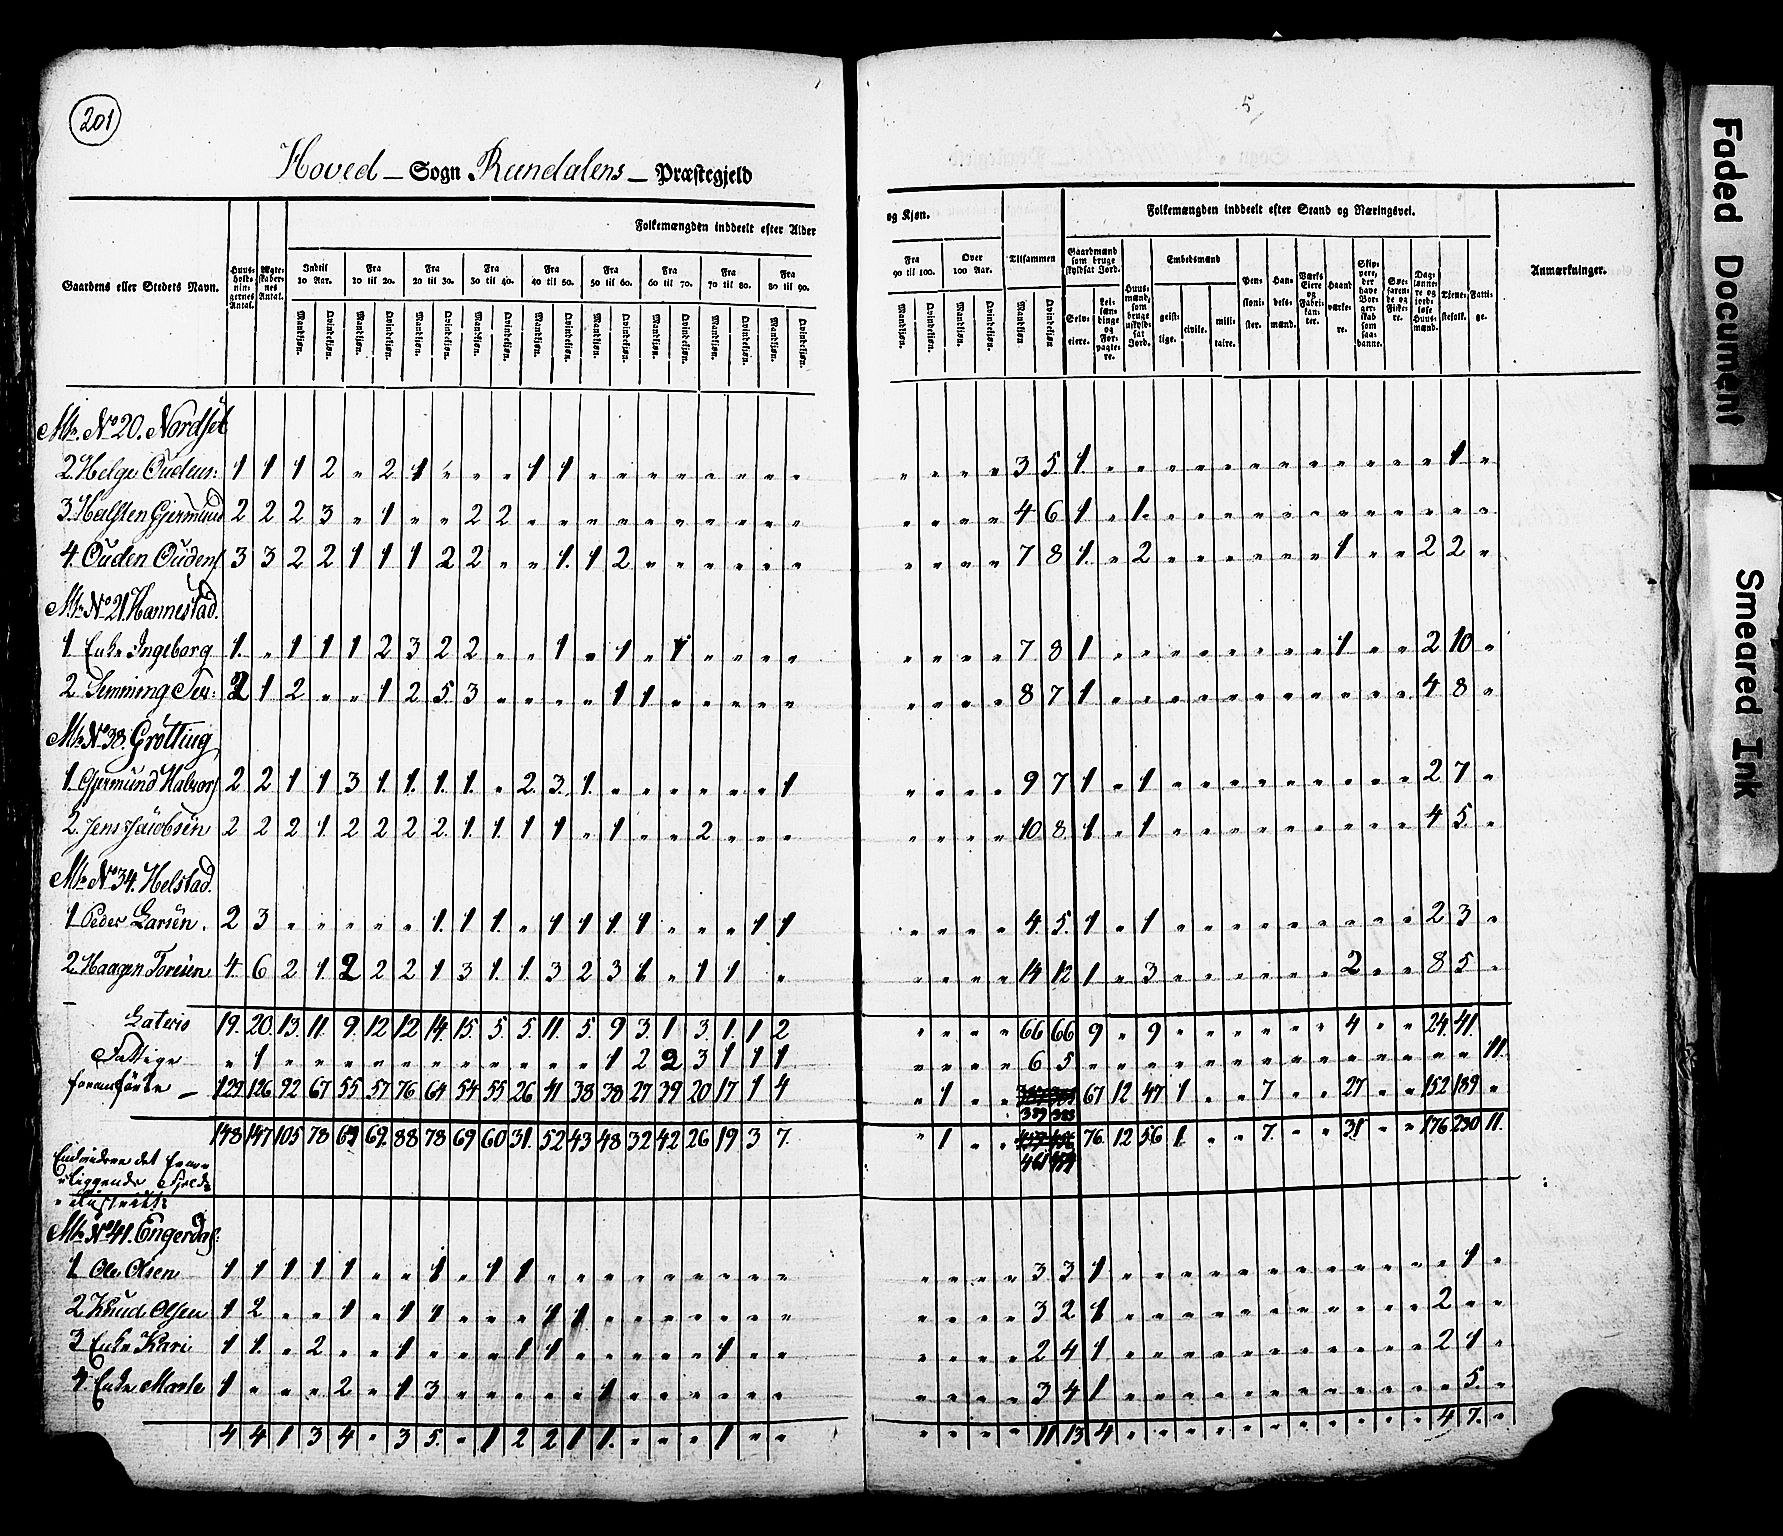 201
5
Hoved – Sogn Rendalens – Præstegjeld
Folkemængden inddeelt efter Alder og Kjøn.
Folkemængden inddeelt efter Stand og Næringsvei.
Gaardens eller Stedets Navn.
Huusholdningernes Antal.
Ægteskabernes Antal.
Indtil 10 Aar.
Fra 10 til 20.
Fra 20 til 30.
Fra 30 til 40.
Fra 40 til 50.
Fra 50 til 60.
Fra 60 til 70.
Fra 70 til 80.
Fra 80 til 90.
Fra 90 til 100.
Over 100 Aar.
Tilsammen
Mandkjøn. Qvindekjøn.
Gaardmænd som bruge skyldsat Jord.
Selveiere.
Leilændinge og Forpagtere.
Huusmænd, som bruge uskyldsat Jord.
Embedsmænd
geistlige. civile. militaire.
Pensionister.
Handelsmænd.
Værks Eiere og Fabrikanter.
Haandværkere.
Skippere, der have Borgerskab som saadanne.
Søefarende og Fiskere.
Daglønnere og jordløse Huusmænd.
Tjenestefolk.
Fattige.
Anmærkninger.
No 20. Nordset
2. Helge Oudens: 1 1 1 2 " 2 1 " " " 1 1 " " " " " " " " " " " " 3 5. 1 " " " " " " " " " " " " 1 "
3. Halsten Gjermund 2 2 2 3 " 1 " " 2 2 " " " " " " " " " " " " " " 4 6 1 " 1. " " " " " " " " " " " "
4. Ouden Oudens 3 3 2 2 1 1 1 2 2 " " 1. 1 2 " " " " " " " " " " 7 8 1. " 2 " " " " " " 1 " " 2 2 "
No 21. Hannestad.
1 Enke Ingeborg 1. " 1 1 1 2 3 2 2 " " 1 " 1 " 1 " " " " " " " " 7 8 1 " " " " " " " " 1 " " 2 10 "
2. Simming 2 1 2 " " 1 2 5. 3 " " " " 1 1 " " " " " " " " " 8 7 1 " " " " " " " " " " " 4 8 "
No 38. Grøtting
1. Gjermund Halvors 2 2 1 1 3 1. 1. 1. 1. " 2. 3. 1. " " " " " " 1 " " " " 9 7 1 " 1 " " " " " " " " " 2 7 "
2. Jens Jacobsen 2 2 2 1. 2 2 2 2. 1. 1. 1 1 " 1 " " 2 " " " " " " " 10 8 1 " 1 " " " " " " " " " 4 5. "
No 34. Helstad.
1 Peder Larsen. 2 3 " " " " " 1. 1 1 " 1 1 1. 1 " " " 1 1 " " " " 4. 5. 1 " 1 " " " " " " " " " 2 3 "
2. Haagen Toresen 4. 6 2 1. 2 2 2 1 3 1. 1. 3 2 3 1 " 1 1 " " " " " 14 12 1 " 3 " " " " " " 2 " " 8 5 "
Lateris 19. 20. 13. 11. 9. 12 12 14. 15. 5. 5. 11. 5. 9 3. 1 3. 1. 1 2 " " " " 66 66 9 " 9 " " " " " " 4 " " 24. 41.
Fattige " 1 " " " " " " " " " " " 1 2 2 3 1 1 1 " " " " 6 5 " " " " " " " " " " " " " " 11.
foranførte – 129 126 92 67 55 57 76 64 54 55 26 41 38 38 27 39 20 17 1 4 " 1 " " 389 388 67 12 47 1 " " 7 " " 27 " " 152 189 "
148 147 105 78 69. 88 78 69 60 31. 52 43 48 32 42. 26 19 3 7. " 1 " " 461 459 76. 12 56 1. " " 7. " " 31 " " 176 230 11.
Endvidere det
liggende Fjeld
Distrikt:
No 41. Engerdal:
1 Ole Olsen 1 1 1 1 1 " " 1 " 1 1 " " " " " " " " " " " " " 3 3 1 " " " " " " " " " " " " 1 "
2. Knud Olsen 1 2 " " 1 " 1 1 " " " 1 1 " " " " " " " " " " " 3 2 1 " " " " " " " " " " " 2 " "
3 Enke Kari 1 1. " 2 " " 1 " " " 1 1 " " " " " 1 " " " " " " 2 4 1 " " " " " " " " " " " 2 1 "
4. Enke Marte 1 " " " 2 " 1 3 " " " " " 1 " " " " " " " " " " 3 4 1 " " " " " " " " " " " " 5. "
4 4 1 3 4 " 3 5. " 1 2 2 1 1. " " " 1 " " " " " " 11 13 4 " " " " " " " " " " " 4 7. "
Faded Document
Smeared Ink